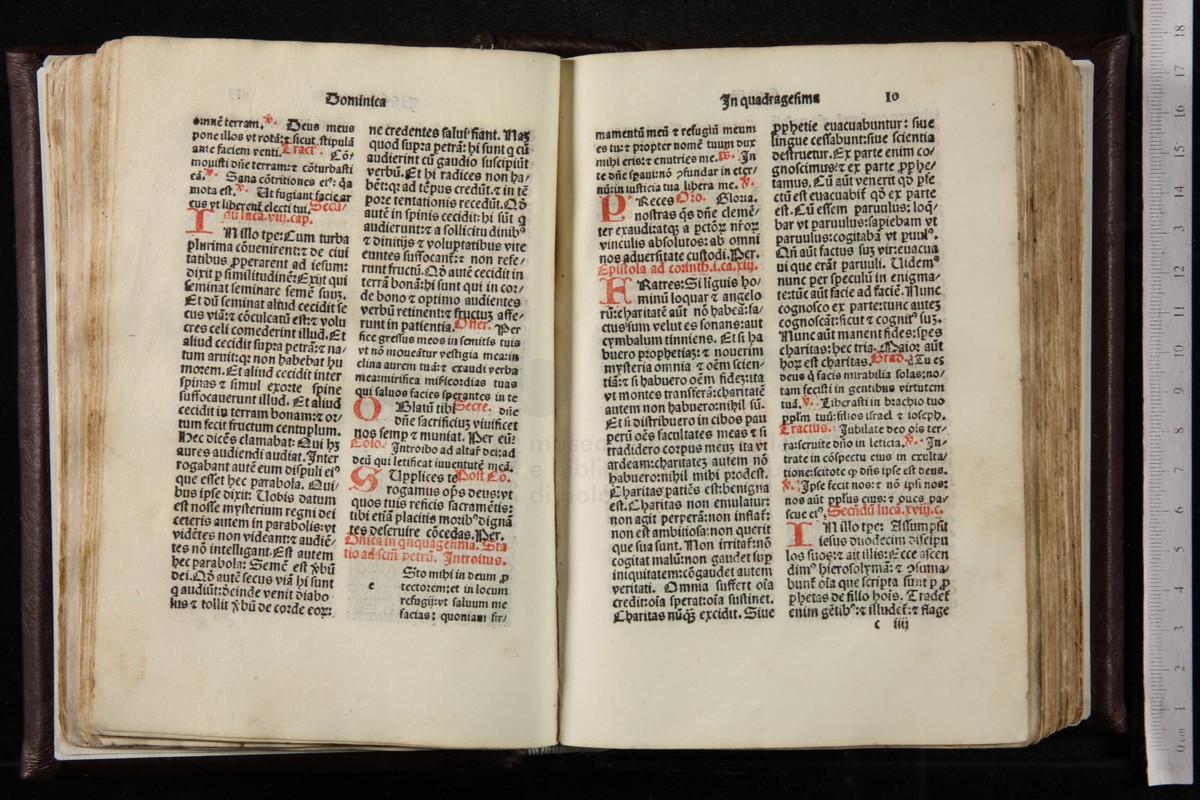 Dominica
omnē terram. ℣. Deus meus
pone illos vt rotā: ⁊ sicut stipulā
ante faciem venti. Tract. Cō/
mouisti dñe terram: ⁊ cōturbasti
eā. ℣. Sana cōtritiones eiꝰ: q̄a
mota est. ℣. Ut fugiant facie ar
cus vt liberent̄ electi tui. Secū/
dū luca. viij. cap.
IN illo tp̄e: Cum turba
plurima cōuenirent: ⁊ de ciui
tatibus ꝓperarent ad iesum:
dixit p similitudinē: Exijt qui
seminat seminare semē suuꝫ.
Et dū seminat aliud cecidit se
cus viā: ⁊ cōculcatū est: ⁊ volu
cres celi comederint illud. Et
aliud cecidit supra petrā: ⁊ na/
tum aruit: qꝛ non habebat hu
morem. Et aliud cecidit inter
spinas ⁊ simul exorte spine
suffocauerunt illud. Et aliud
cecidit in terram bonam: ⁊ oꝛ/
tum fecit fructum centuplum.
Hec dicēs clamabat: Qui hꝫ
aures audiendi audiat. Inter
rogabant autē eum discipuli eiꝰ
que esset hec parabola. Qui/
bus ipse dixit: Uobis datum
est nosse mysterium regni dei
ceteris autem in parabolis: vt
vidētes non videant: ⁊ audiē/
tes nō intelligant. Est autem
hec parabola: Semē est v̄bū
dei. Qđ autē secus viā hi sunt
q audiūt: deinde venit diabo
lus ⁊ tollit v̄bū de corde eoꝝ:
ne credentes salui fiant. Naꝫ
quod supra petrā: hi sunt q cū
audierint cū gaudio suscipiūt
verbū. Et hi radices non ha/
bēt: qꝛ ad tēpus credūt: ⁊ in tē
pore tentationis recedūt. Qđ
autē in spinis cecidit: hi sūt q
audierunt: ⁊ a sollicitudinibꝰ
⁊ diuitijs ⁊ voluptatibus vite
euntes suffocant̄: ⁊ non refe/
runt fructū. Qđ autē cecidit in
terrā bonā: hi sunt qui in cor/
de bono ⁊ optimo audientes
verbū retinent: ⁊ fructuꝫ affe/
runt in patientia. Offer. Per
fice gressus meos in semitis tuis
vt nō moueātur vestigia mea: in
clina aurem tuā: ⁊ exaudi verba
mea: mirifica misericordias tuas
qui saluos facies sperantes in te
OBlatū tibi Secre. dñe
dñe sacrificiuꝫ viuificet
nos semꝑ ⁊ muniat. Per eū:
Cōio. Introibo ad altaf dei: ad
deū qui letificat iuuentutē meā.
SUpplices te Post Co.
rogamus op̄s deus: vt
quos tuis reficis sacramētis:
tibi etiā placitis moribꝰ dignā
tes deseruire cōcedas. Per.
Dn̄ica in qn̄quagesima. Sta
tio ad scm̄ petrū. Introitus.
Esto mihi in deum ꝓ
tectorem: et in locum
refugij: vt saluum me
facias: quoniam fir/
In quadragesima 10
mamentū meū ⁊ refugiū meum
es tu: ⁊ propter nomē tuum dux
mihi eris: ⁊ enutries me. ps. In
te dñe spaui: nō ꝯfundar in eter/
nū: in iusticia tua libera me. ℣.
PReces Oro. Gloria.
nostras qs dñe clemē/
ter exaudi: atqꝫ a pctōꝝ nr̄oꝝ
vinculis absolutos: ab omni
nos aduersitate custodi. Per.
Epistola ad corinth. i. ca. xiij.
FRatres: Si liguis ho/
minū loquar ⁊ angelo
rū: charitatē aūt nō habeā: fa/
ctus sum velut es sonans: aut
cymbalum tinniens. Et si ha
buero prophetiaꝫ: ⁊ nouerim
mysteria omnia ⁊ oēm scien/
tiā: ⁊ si habuero oēm fidē: ita
vt montes transferā: charitatē
autem non habuero: nihil sū.
Et si distribuero in cibos pau
perū oēs facultates meas ⁊ si
tradidero corpus meuꝫ ita vt
ardeam: charitateꝫ autem nō
habuero: nihil mihi prodest.
Charitas patiēs est: benigna
est. Charitas non emulatur:
non agit perperā: non inflat̄:
non est ambitiosa: non querit
que sua sunt. Non irritat̄: nō
cogitat malū: non gaudet suꝑ
iniquitatem: cōgaudet autem
veritati. Omnia suffert oīa
credit: oīa sperat: oīa sustinet.
Charitas nūqꝫ excidit. Siue
ꝓphetie euacuabuntur: siue
lingue cessabunt: siue scientia
destruetur. Ex parte enim co/
gnoscimus: ⁊ ex parte ꝓphe/
tamus. Cū aūt venerit qđ pfe
ctū est euacuabit̄ qđ ex parte
est. Cū essem paruulus: loq̄/
bar vt paruulus: sapiebam vt
paruulus: cogitabā vt puulꝰ.
Qn̄ aūt factus suꝫ vir: euacua
ui que erāt paruuli. Uidemꝰ
nunc per speculū in enigma/
te: tūc aūt facie ad faciē. Nunc
cognosco ex parte: tunc auteꝫ
cognoscā: sicut ⁊ cognitꝰ suꝫ.
Nunc aūt manent fides: spes
charitas: hec tria. Maior aūt
hoꝝ est charitas. Grad. Tu es
deus q̄ facis mirabilia solas: no/
tam fecisti in gentibus virtutem
tuā. ℣. Liberasti in brachio tuo
pplm̄ tuū: filios israel ⁊ ioseph.
Tractus. Jubilate deo oīs ter/
ra: seruite dño in leticia. ℣. In/
trate in cōspectu eius in exulta/
tione: scitote ꝙ dñs ipse est deus.
℣. Ipse fecit nos: ⁊ nō ipsi nos:
nos aūt pplus eius: ⁊ oues pa/
scue eiꝰ. Secūdū lucā. xviij. c.
IN illo tpe: Assumpsit
iesus duodecim discipu
los suos: ⁊ ait illis: Ecce ascen
dimꝰ hierosolymā: ⁊ ꝯsuma/
bunt̄ oīa que scripta sunt ꝑ ꝓ
phetas de filio hoīs. Tradet̄
enim gētibꝰ: ⁊ illudet̄: ⁊ flage
c iiij